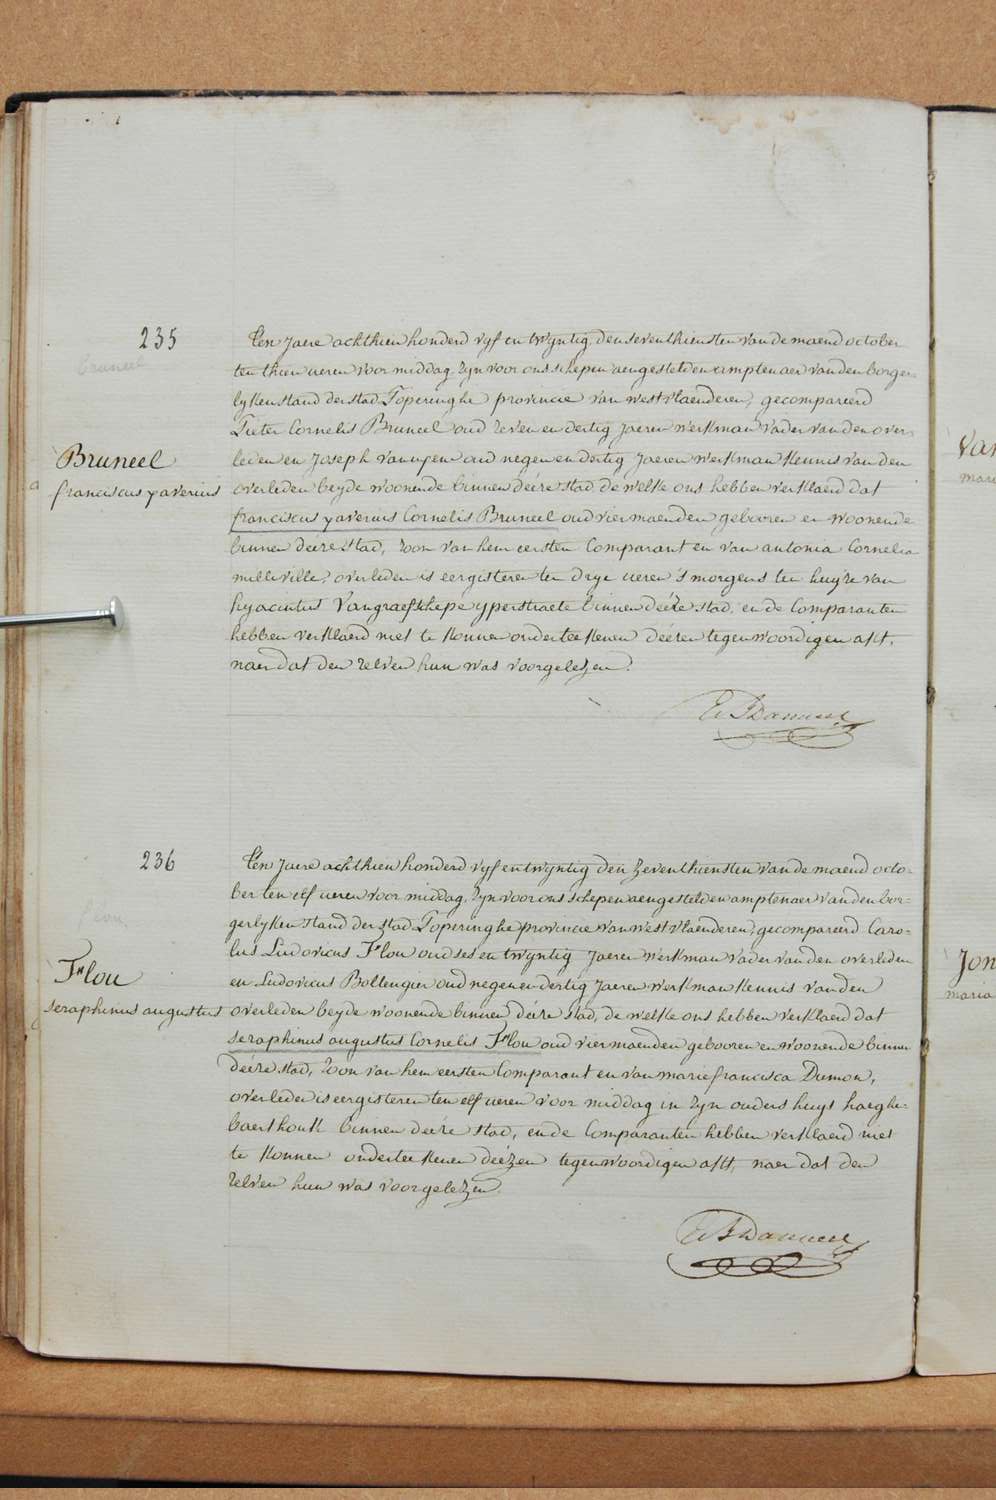 235
bruneel
Bruneel
franciscus xaverius
Ten Jaere achthien honderd vyf en twyntig, den seventhiensten van de maend october
ten thien ueren voor middag, Zyn voor ons schepen aengestelden amptenaer van den borger-
lyken stand der stad Poperinghe provincie van westvlaenderen, gecompareerd
Pieter Cornelis Bruneel oud zeven en dertig Jaeren werkman vader van den over-
leden en Joseph van upen oud negen en dertig Jaeren werkman kennis van den
overleden beyde woonende binnen deéze stad de welke ons hebben verklaerd dat
franciscus xaverius Cornelis Bruneel oud vier maenden geboren en woonende
binnen deéze stad, Zoon van hem eersten Comparant en van antonia Cornelia
milleville, overleden is eergisteren ten drye ueren 's morgens ten huyze van
hyacintus Vangraefschepe yperstraete binnen deéze stad, en de Comparanten
hebben verklaerd niet te konnen onderteekenen deézen tegenwoordigen akt,
naer dat den zelven hun was voorgelezen.
236
flou
Flou
seraphinus augustus
Ten Jaere achthien honderd vyf en twyntig den zeventhiensten van de maend octo-
ber ten elf ueren voor middag, Zyn voor ons schepen aengestelden amptenaer van den bor-
gerlyken stand der stad Poperinghe provincie van westvlaenderen, gecompareerd Caro-
lus Ludovicus Flou oud ses en twyntig Jaeren werkman vader van den overleden
en Ludovicus Bollengier oud negen en dertig Jaeren werkman kennis van den
overleden beyde woonende binnen deéze stad, de welke ons hebben verklaerd dat
seraphinus augustus Cornelis Flou oud vier maenden geboren en woonende binnen
deéze stad, Zoon van hem eersten Comparant en van marie francisca Dumon,
overleden is eergisteren ten elf ueren voor middag in Zyn ouders huys haeghe-
baerthoek binnen deeze stad, en de Comparanten hebben verklaerd niet
te konnen onderteekenen deézen tegenwoordigen akt, naer dat den
zelven hun was voorgelezen.
Van
marie
Jon
maria